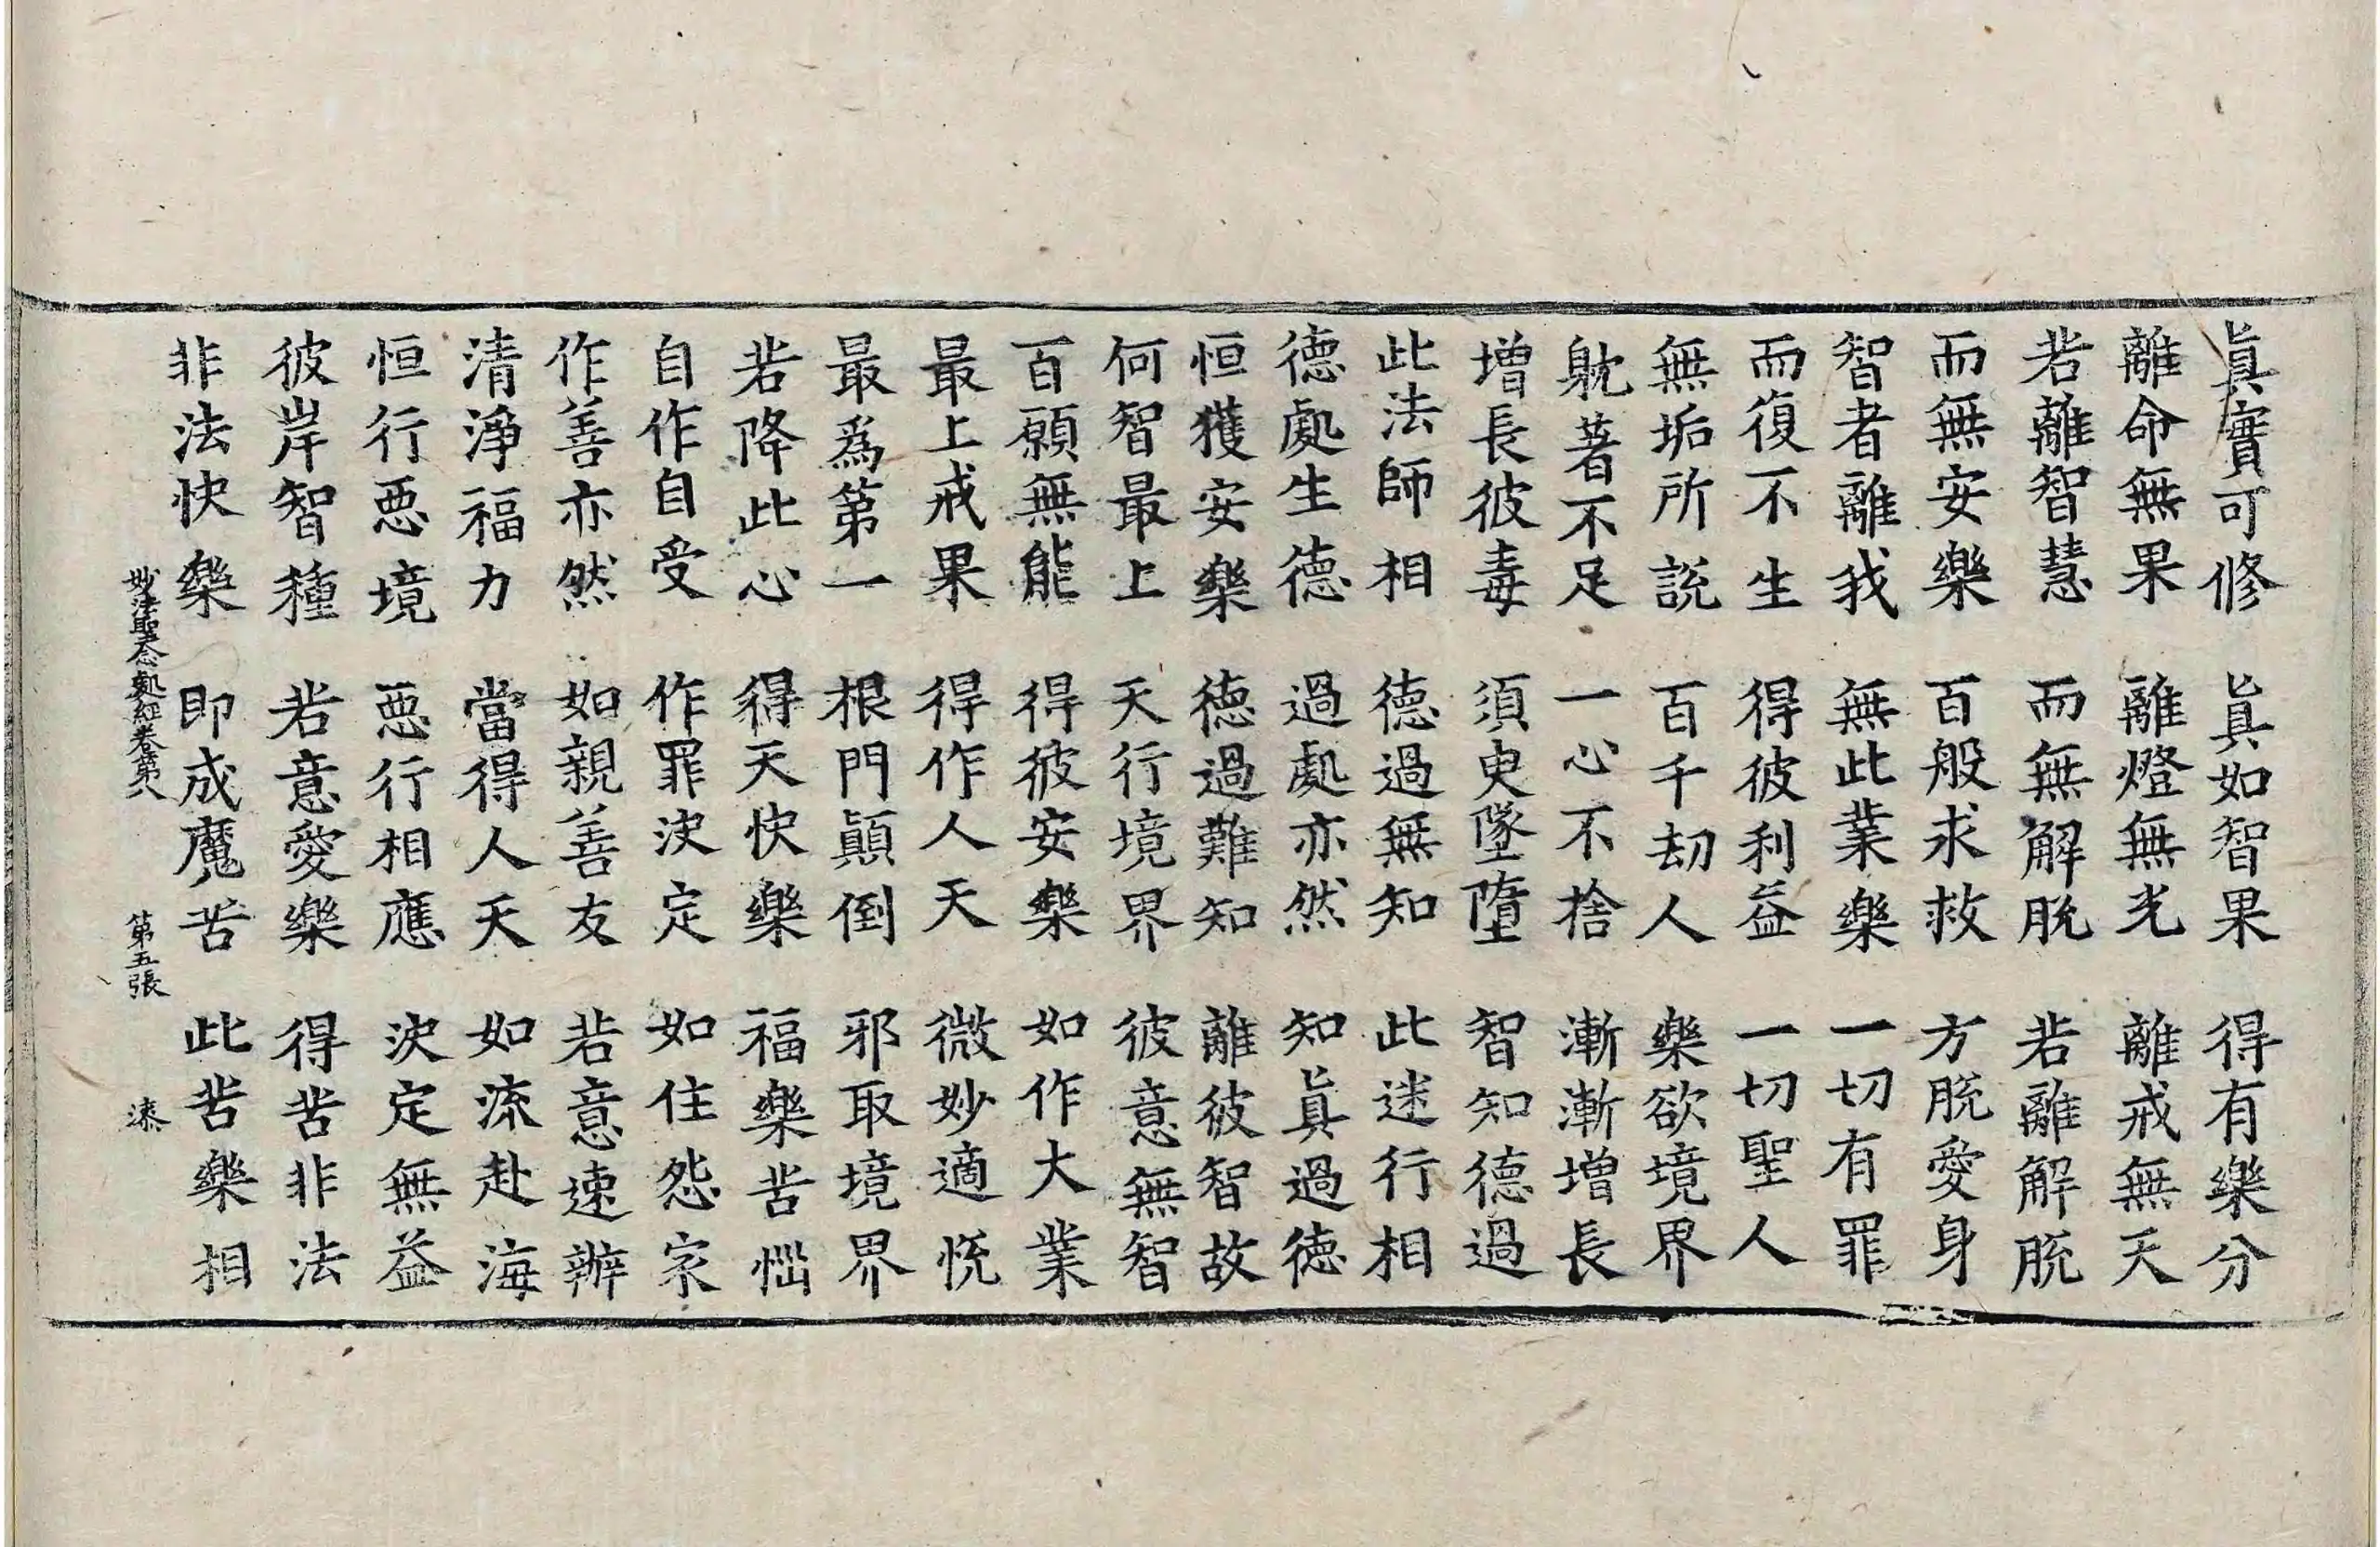 眞實可修　眞如智果　得有樂分
離命無果　離燈無光　離戒無天
若離智慧　而無解脫　若離解脫
而無安樂　百般求救　方脫愛身
智者離我　無此業樂　一切有罪
而復不生　得彼利益　一切聖人
無垢所說　百千劫人　樂欲境界
躭著不足　一心不捨　漸漸增長
增長彼毒　須臾墜墮　智知德過
此法師相　德過無知　此迷行相
德處生德　過處亦然　知眞過德
恒獲安樂　德過難知　離彼智故
何智最上　天行境界　彼意無智
百願無能　得彼安樂　如作大業
最上戒果　得作人天　微妙適悅
最爲第一　根門顚倒　邪取境界
若降此心　得天快樂　福樂苦惱
自作自受　作罪決定　如住怨家
作善亦然　如親善友　若意速辦
清淨福力　當得人天　如流赴海
恒行惡境　惡行相應　決定無益
彼岸智種　若意愛樂　得苦非法
非法快樂　即成魔苦　此苦樂相
妙法聖念處經卷第八　第五張　漆